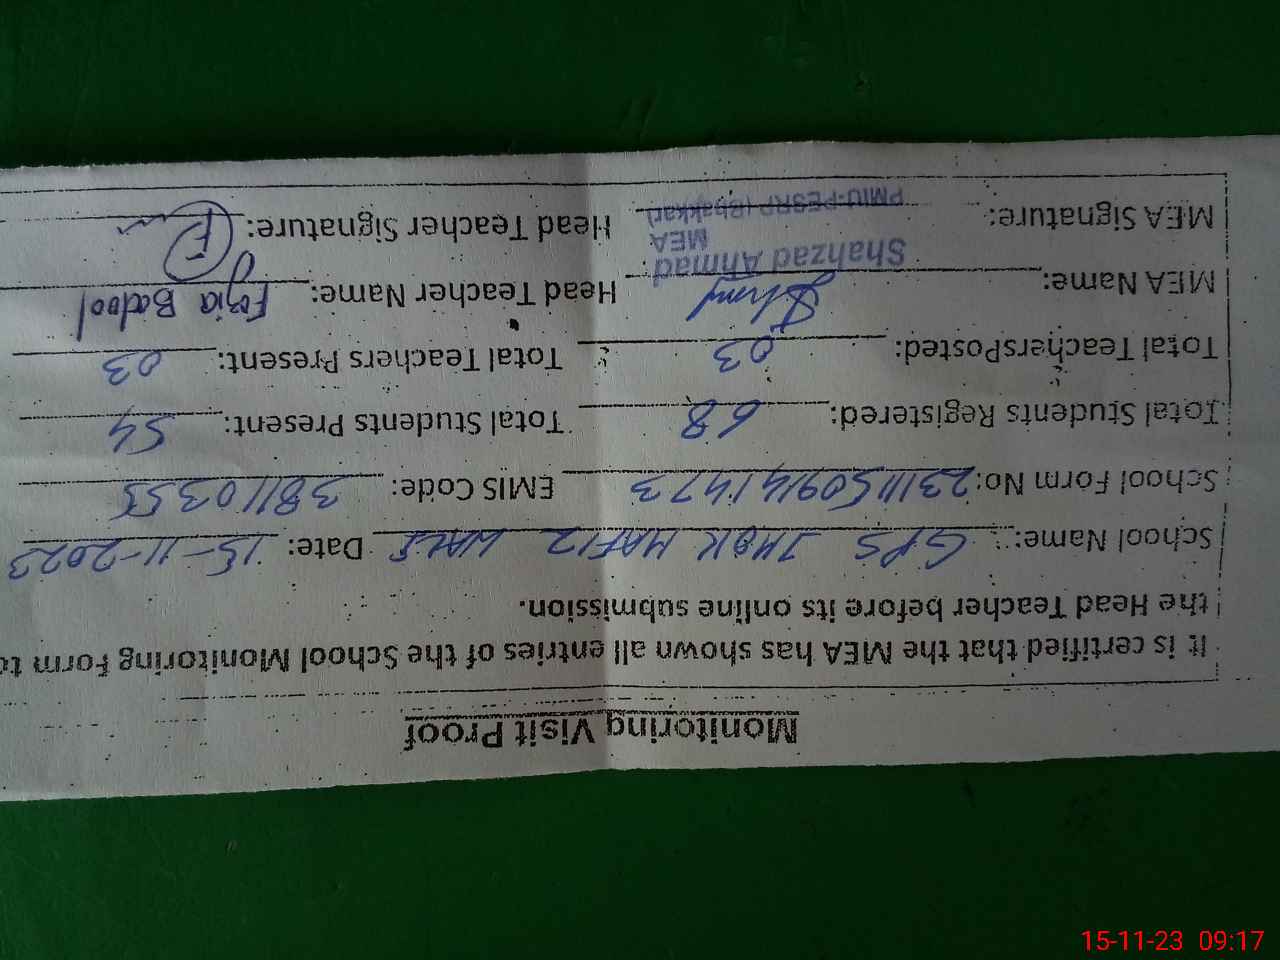 Monitoring Visit Proof
It is certified that the MEA has shown all entries of the School Monitoring Form to
the Head Teacher before its online submission.
School Name: GPS JHOK HAFIZ WALI Date: 15-11-2023
School Form No: 23111509141473 EMIS Code: 38110355
Total Students Registered: 68 Total Students Present: 54
Total TeachersPosted: 03 Total Teachers Present: 03
MEA Name: Head Teacher Name: Fozia Batool
Shahzad Ahmad
MEA
MEA Signature: PMIU-PESRP (Bhakkar) Head Teacher Signature:
15-11-23 09:17